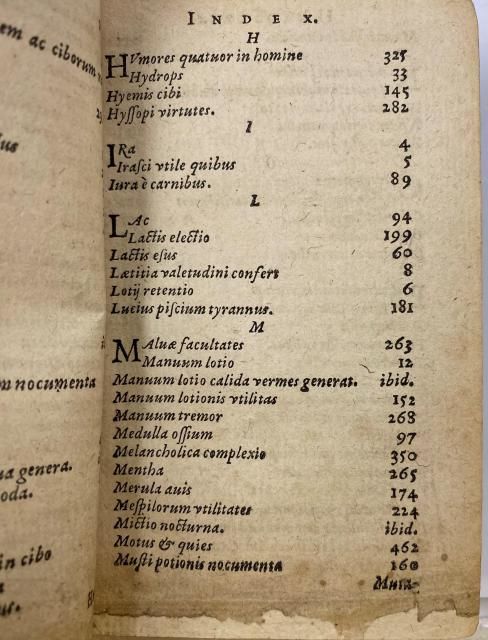 em ac ciborum
lus
m nocumenta
ua genera.
oda.
in cibo
us.
INDEX.
H
HVmores quatuor in homine 325
Hydrops 33
Hyemis cibi 145
Hyſſopi virtutes. 282
I
IRa 4
Iraſci vtile quibus 5
Iura è carnibus. 89
L
LAc 94
Lactis electio 199
Lactis eſus 60
Lætitia valetudini confert 8
Lotij retentio 6
Lucius piſcium tyrannus. 181
M
MAluæ facultates 263
Manuum lotio 12
Manuum lotio calida vermes generat. ibid.
Manuum lotionis vtilitas 152
Manuum tremor 268
Medulla oſſium 97
Melancholica complexio 350
Mentha 265
Merula auis 174
Meſpilorum vtilitates 224
Mictio nocturna. ibid.
Motus & quies 462
Muſti potionis nocumenta 160